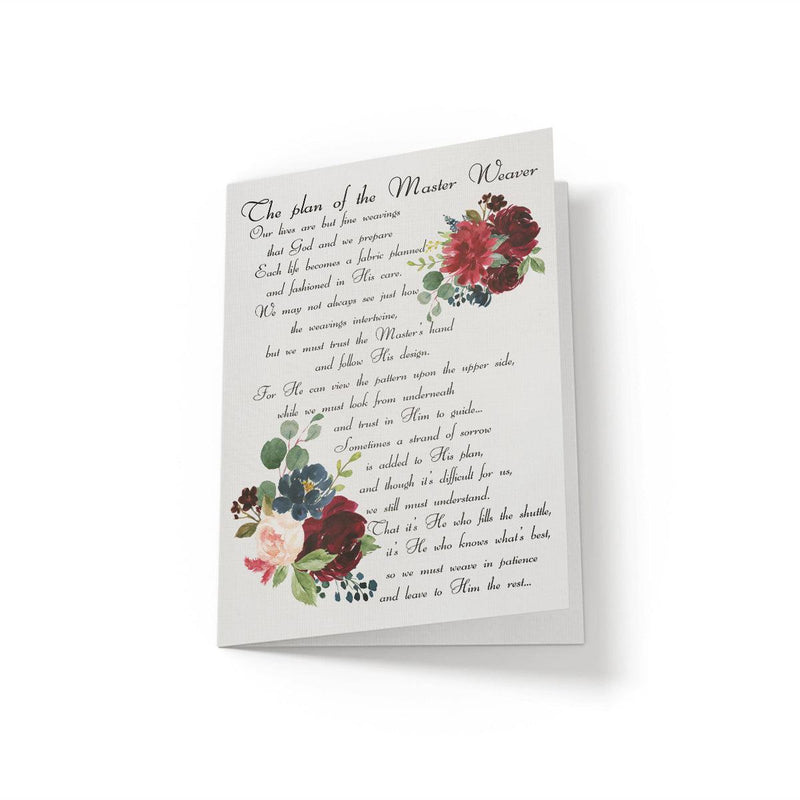 The plan of the Master Weaver
Our lives are but fine weavings
that God and we prepare
Each life becomes a fabric planned
and fashioned in His care.
We may not always see just how
the weavings intertwine,
but we must trust the Master's hand
and follow His design.
For He can view the pattern upon the upper side,
while we must look from underneath
and trust in Him to guide...
Sometimes a strand of sorrow
is added to His plan,
and though it's difficult for us,
we still must understand.
That it's He who fills the shuttle,
it's He who knows what's best,
so we must weave in patience
and leave to Him the rest...